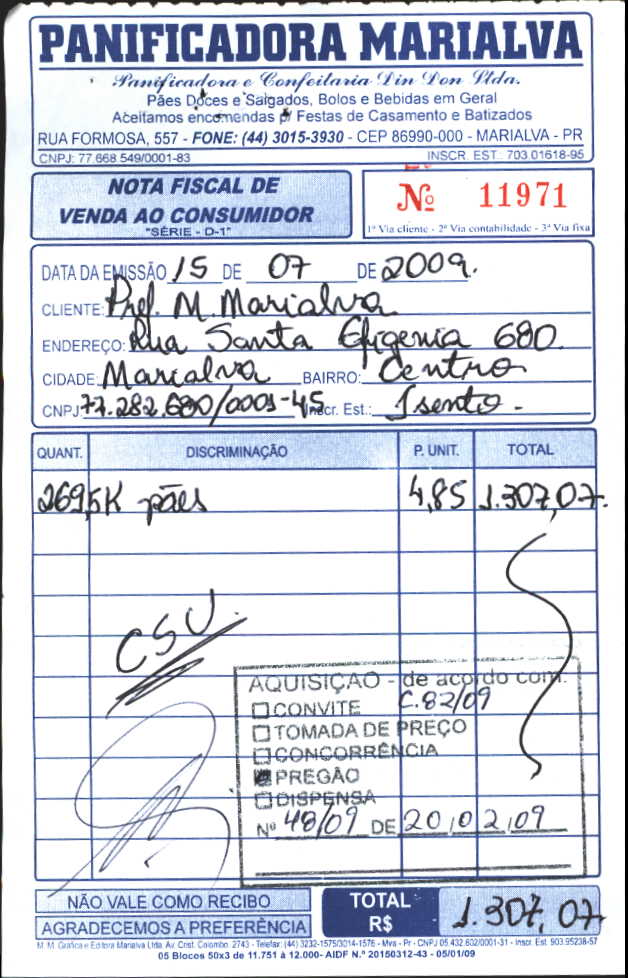 PANIFICADORA MARIALVA
Panificadora e Confeitaria Din Don Ltda.
Pães Doces e Salgados, Bolos e Bebidas em Geral
Aceitamos encomendas p/ Festas de Casamento e Batizados
RUA FORMOSA, 557 - FONE: (44) 3015-3930 - CEP 86990-000 - MARIALVA - PR
CNPJ: 77.668.549/0001-83 INSCR. EST. 703.01618-95
NOTA FISCAL DE
VENDA AO CONSUMIDOR
"SÉRIE - D-1"
Nº 11971
1ª Via cliente - 2ª Via contabilidade - 3ª Via fixa
DATA DA EMISSÃO 15 DE 07 DE 2009.
CLIENTE: Pref. M. Marialva
ENDEREÇO: Rua Santa Efigenia 680.
CIDADE: Marialva BAIRRO: Centro
CNPJ: 77.282.680/0001-45 Inscr. Est.: Isento.
QUANT. DISCRIMINAÇÃO P. UNIT. TOTAL
269,5K pães 4,85 1.307,07.
CSU.
AQUISIÇÃO - de acordo com:
CONVITE C.82/09
TOMADA DE PREÇO
CONCORRÊNCIA
PREGÃO
DISPENSA
Nº 48/09 DE 20/02/09
NÃO VALE COMO RECIBO
AGRADECEMOS A PREFERÊNCIA
TOTAL R$ 1.307,07
M. M. Gráfica e Editora Marialva Ltda. Av. Crist. Colombo, 2743 - Telefax: (44) 3232-1575/3014-1576 - Mva - Pr - CNPJ 05.432.602/0001-31 - Inscr. Est. 903.95238-57
05 Blocos 50x3 de 11.751 à 12.000- AIDF N.º 20150312-43 - 05/01/09